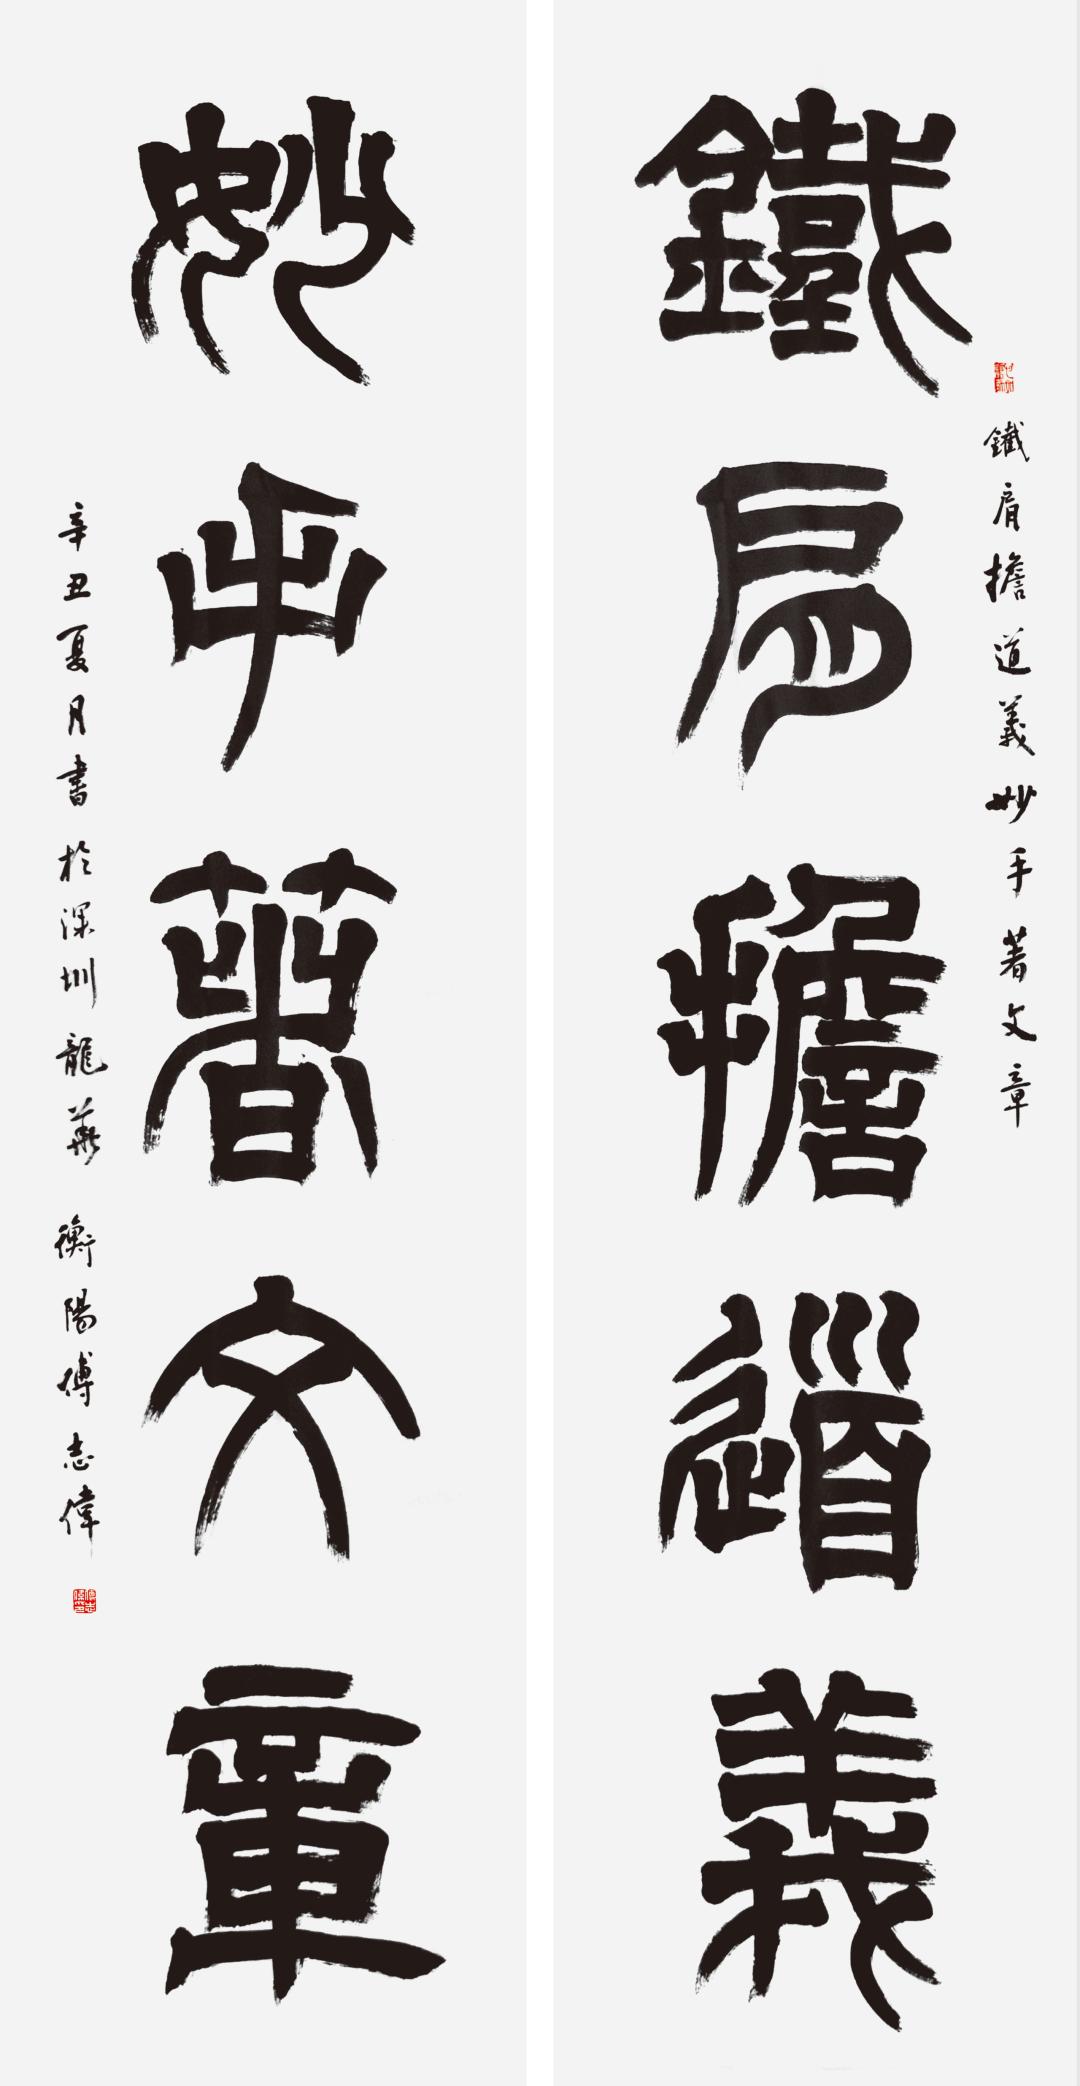 鐵肩擔道義
鐵肩擔道義妙手著文章
妙手著文章
辛丑夏月書於深圳龍華 衡陽傅志偉